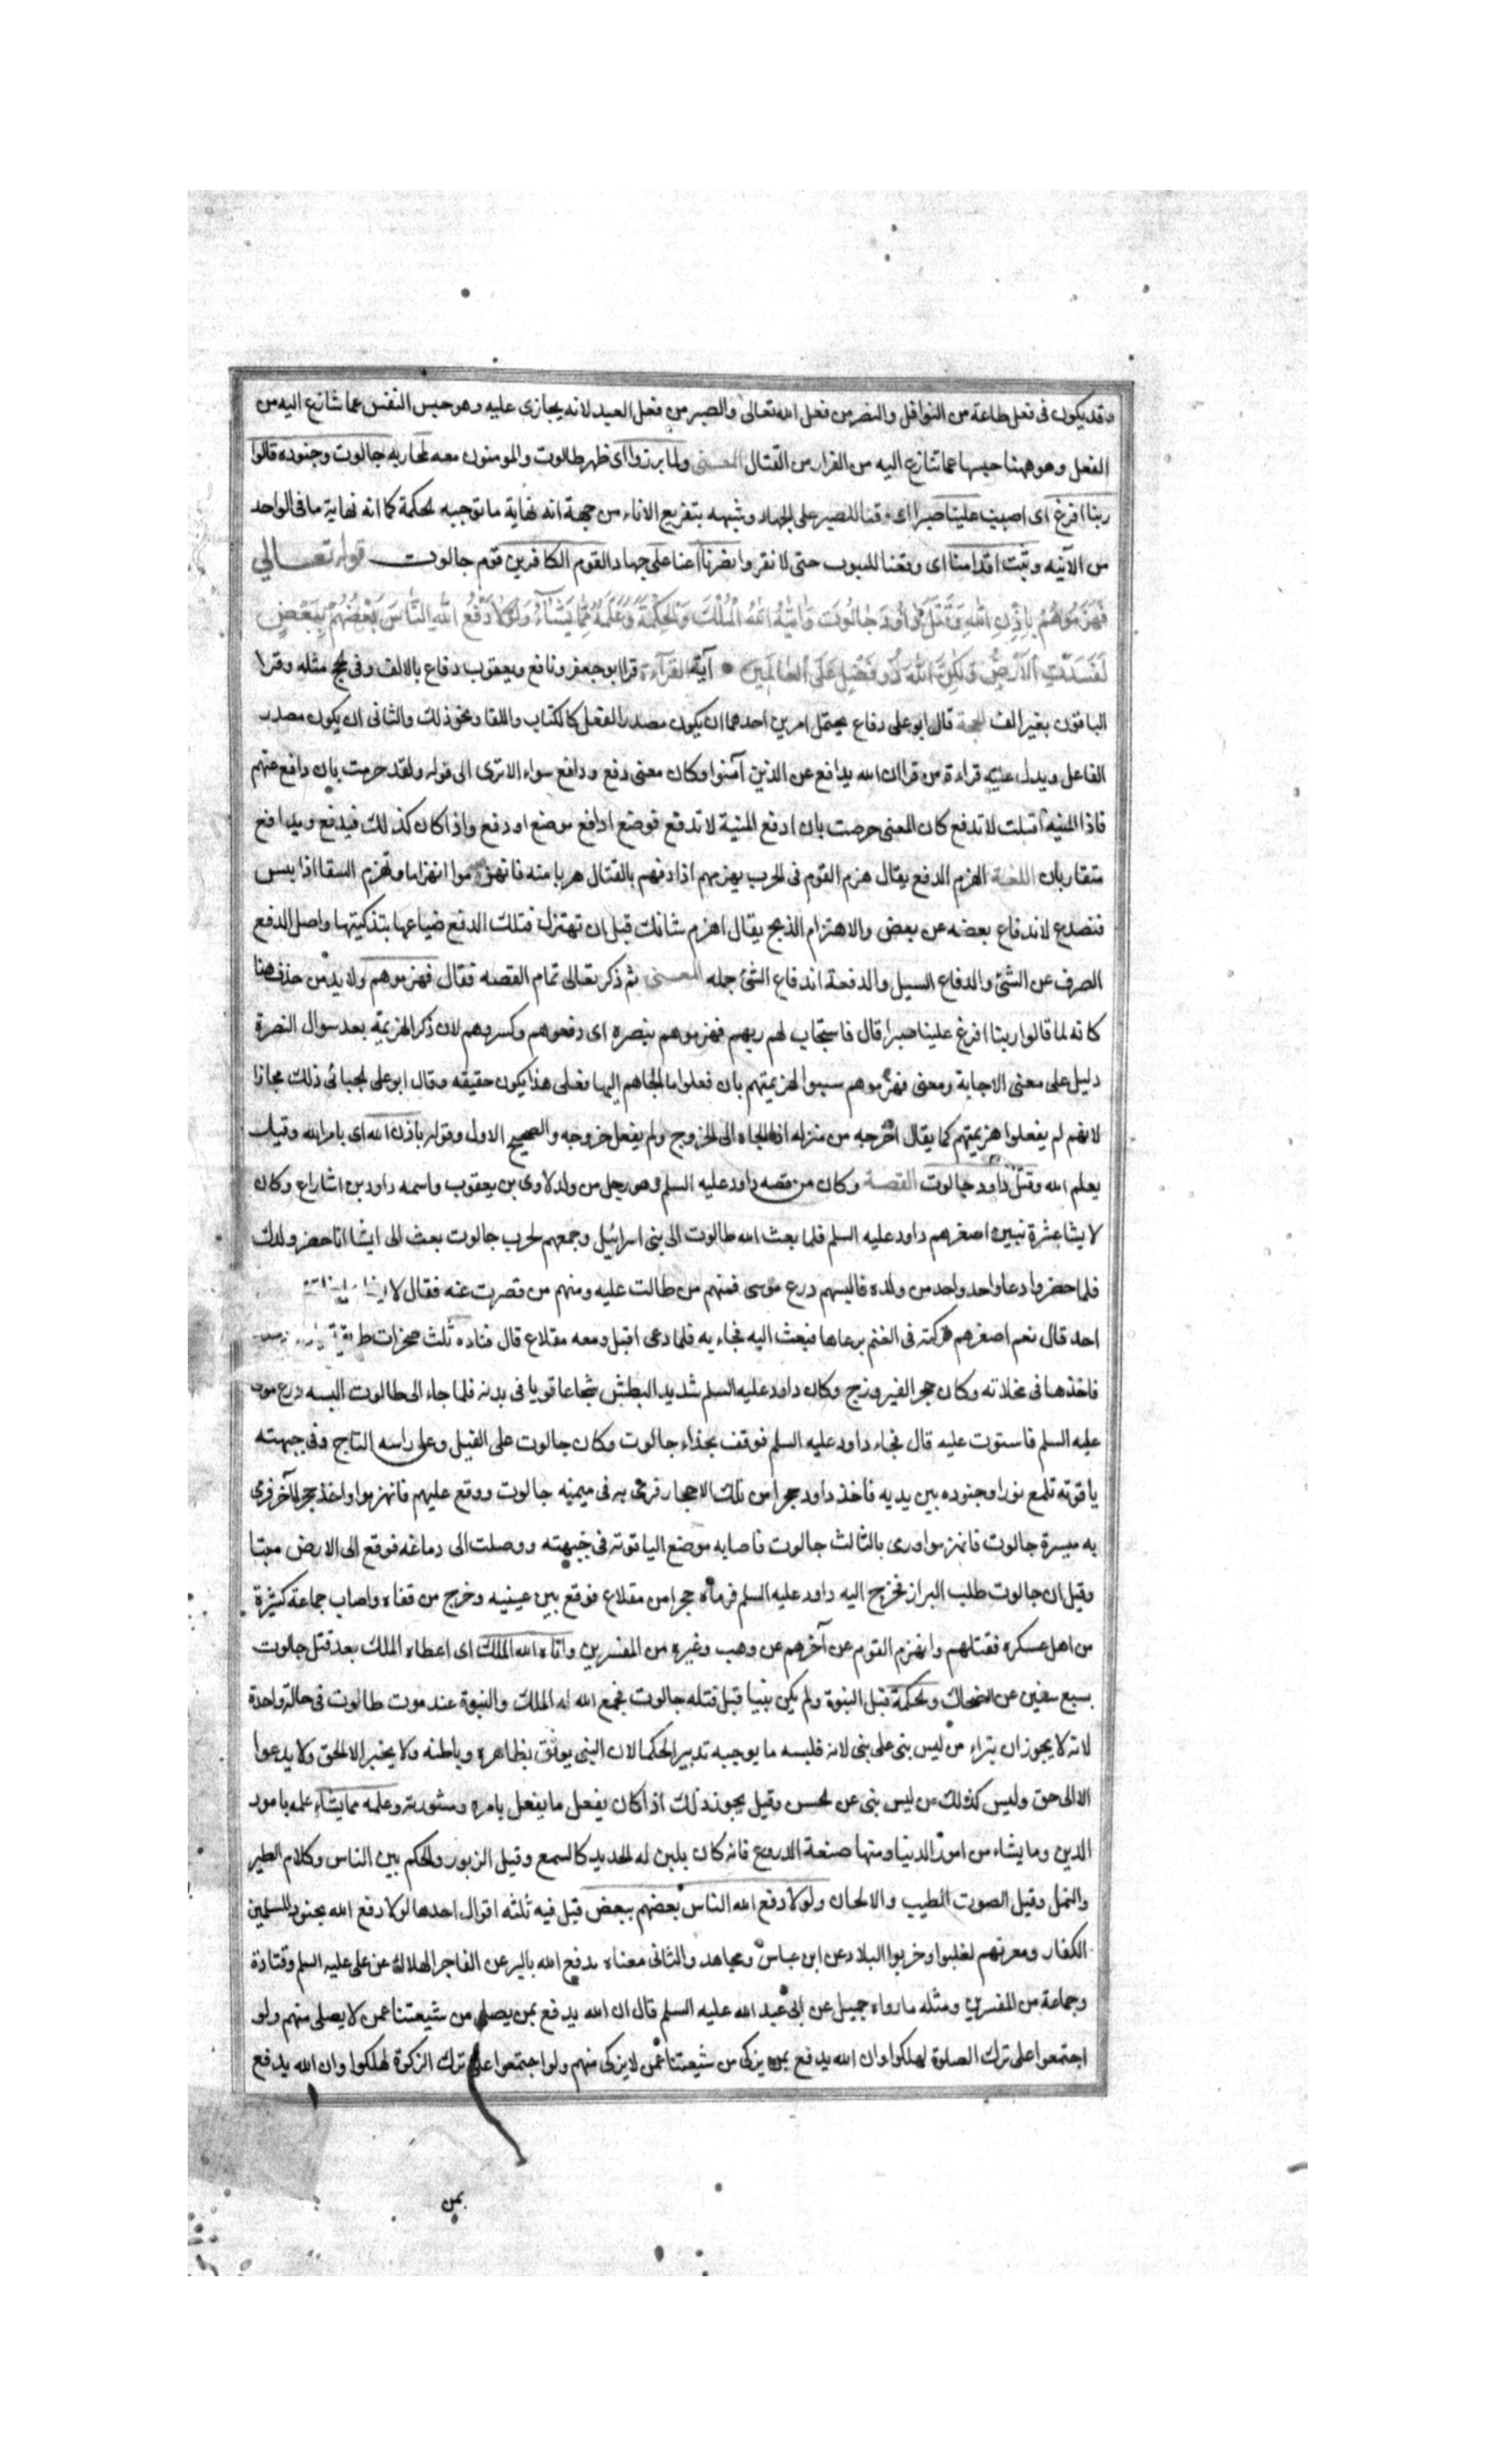 وقد يكون فى فعل طاعة من النوافل والنصر من فعل الله تعالى والصبر من فعل العبد لانه يجازى عليه وهو حبس النفس عما تنازع اليه من
الفعل وهو ههنا حبسها عما تنازع اليه من الفرار من القتال المعنى ولما برزوا اى ظهر طالوت والمومنون معه لمحاربه جالوت وجنوده قالوا
ربنا افرغ اى اصبب علينا صبرا اى وفقنا للصبر على الجهاد وشبهه بتفريغ الاناء من جهة انه نهاية ما توجبه الحكمة كما انه نهاية ما فى الواحد
من الآنيه وثبت اقدامنا اى وفقنا للثبوت حتى لا نفر وانصرنا اعنا على جهاد القوم الكافرين قوم جالوت قوله تعالى
فَهَزَمُوهُمْ بِاِذْنِ اللهِ وَقَتَلَ دَاوُدَ جَالُوتَ وَاٰتٰيهُ اللهُ الْمُلْكَ وَالْحِكْمَةَ وَعَلَّمَهُ مِمَّا يَشَاءُ وَلَوْلَا دَفْعُ اللهِ النَّاسَ بَعْضُهُمْ بِبَعْضٍ
لَفَسَدَتِ الْاَرْضُ وَلٰكِنَّ اللهَ ذُو فَضْلٍ عَلَى الْعَالَمِينَ آية القراءة قرا ابو جعفر ونافع ويعقوب دفاع بالالف وفى الحج مثله وقرا
الباقون بغير الف الحجة قال ابو على دفاع يحتمل امرين احدهما ان يكون مصدر الفعل كالكتاب واللقا ونحو ذلك والثانى ان يكون مصدر
الفاعل ويدل عليه قراءة من قرا ان الله يدافع عن الذين آمنوا وكان معنى دفع ودافع سواء الا ترى الى قوله ولقد حرصت بان دافع عنهم
فاذا المنية اقبلت لا تدفع كان المعنى حرصت بان ادفع المنية لا تدفع فوضع ادافع موضع ادفع واذا كان كذلك فيدفع ويدافع
متقاربان اللغة الهزم الدفع يقال هزم القوم فى الحرب يهزمهم اذا دفعهم بالقتال هربا منه فانهزموا انهزاما وتهزم السقا اذا يبس
فتصدع لاندفاع بعضه عن بعض والاهتزام الذبح يقال اهتزم شاتك قبل ان تهتزل فتلك الدفع ضياعها بتذكيتها واصل الدفع
الصرف عن الشئ والدفاع السيل والدفعة اندفاع الشئ جمله المعنى ثم ذكر تعالى تمام القصه فقال فهزموهم ولا بد من حذف هنا
كانه لما قالوا ربنا افرغ علينا صبرا قال فاستجاب لهم ربهم فهزموهم بنصره اى دفعوهم وكسروهم لان ذكر الهزيمة بعد سوال النصرة
دليل على معنى الاجابة ومعنى فهزموهم سببوا لهزيمتهم بان فعلوا ما الجاهم اليها فعلى هذا يكون حقيقه وقال ابو على الجبائى ذلك مجازا
لانهم لم يفعلوا هزيمتهم كما يقال اخرجه من منزله اذا الجاه الى الخروج ولم يفعل خروجه والصحيح الاول وقوله باذن الله اى بامر الله وقيل
يعلم الله وقتل داود جالوت القصة وكان من قصه داود عليه السلم وهو رجل من ولد لاوى بن يعقوب واسمه داود بن اشاراع وكان
لايشا عشرة نبيين اصغرهم داود عليه السلم فلما بعث الله طالوت الى بنى اسرائيل وجمعهم لحرب جالوت بعث الى ايشا ان احضر ولدك
فلما حضروا دعا واحد واحد من ولده فالبسهم درع موسى فمنهم من طالت عليه ومنهم من قصرت عنه فقال لايشا
احد قال نعم اصغرهم تركته فى الغنم يرعاها فبعث اليه فجاء به فلما دعى اقبل ومعه مقلاع قال فناده ثلث صخرات
فاخذها فى مخلاته وكان حجر الفيروزج وكان داود عليه السلم شديد البطش شجاعا قويا فى بدنه فلما جاء الى طالوت البسه درع موسى
عليه السلم فاستوت عليه قال فجاء داود عليه السلم فوقف بحذاء جالوت وكان جالوت على الفيل وعلى راسه التاج وفى جبهته
ياقوتة تلمع نورا وجنوده بين يديه فاخذ داود حجرا من تلك الاحجار فرمى به فى ميمنه جالوت ووقع عليهم فانهزموا واخذ حجرا آخر فرمى
به ميسرة جالوت فانهزموا ورمى بالثالث جالوت فاصابه موضع الياقوته فى جبهته ووصلت الى دماغه فوقع الى الارض ميتا
وقيل ان جالوت طلب البراز فخرج اليه داود عليه السلم فرماه حجرا من مقلاع فوقع بين عينيه وخرج من قفاه واصاب جماعة كثيرة
من اهل عسكره فقتلهم وانهزم القوم عن آخرهم عن وهب وغيره من المفسرين واتاه الله الملك اى اعطاه الملك بعد قتل جالوت
بسبع سنين عن الضحاك والحكمة قيل النبوة ولم يكن نبيا قبل قتله جالوت فجمع الله له الملك والنبوة عند موت طالوت فى حالة واحدة
لانه لا يجوز ان يتراء من ليس بنى على بنى لانه قلبسه ما يوجبه تدبير الحكما لان النبى يوثق بظاهره وباطنه ولا يخبر الا الحق ولا يدعوا
الا الى حق وليس كذلك من ليس بنى عن الحسن وقيل يجوز ذلك اذا كان يفعل ما يفعل بامره ومشورته وعلمه مما يشاء علمه بامور
الدين وما يشاء من امور الدنيا ومنها صنعة الدروع فانه كان يلين له الحديد كالسمع وقيل الزبور والحكم بين الناس وكلام الطير
والنمل وقيل الصوت الطيب والالحان ولولا دفع الله الناس بعضهم ببعض قيل فيه ثلثه اقوال احدها لولا دفع الله بجنود المسلمين
الكفار ومعرتهم لغلبوا وخربوا البلاد عن ابن عباس ومجاهد والثانى معناه يدفع الله بالبر عن الفاجر الهلاك عن على عليه السلم وقتادة
وجماعة من المفسرين ومثله ما رواه جميل عن ابى عبد الله عليه السلم قال ان الله يدفع بمن يصلى من شيعتنا عمن لا يصلى منهم ولو
اجتمعوا على ترك الصلوة لهلكوا وان الله يدفع بمن يزكى من شيعتنا عمن لا يزكى منهم ولو اجتمعوا على ترك الزكوة لهلكوا وان الله يدفع
بمن